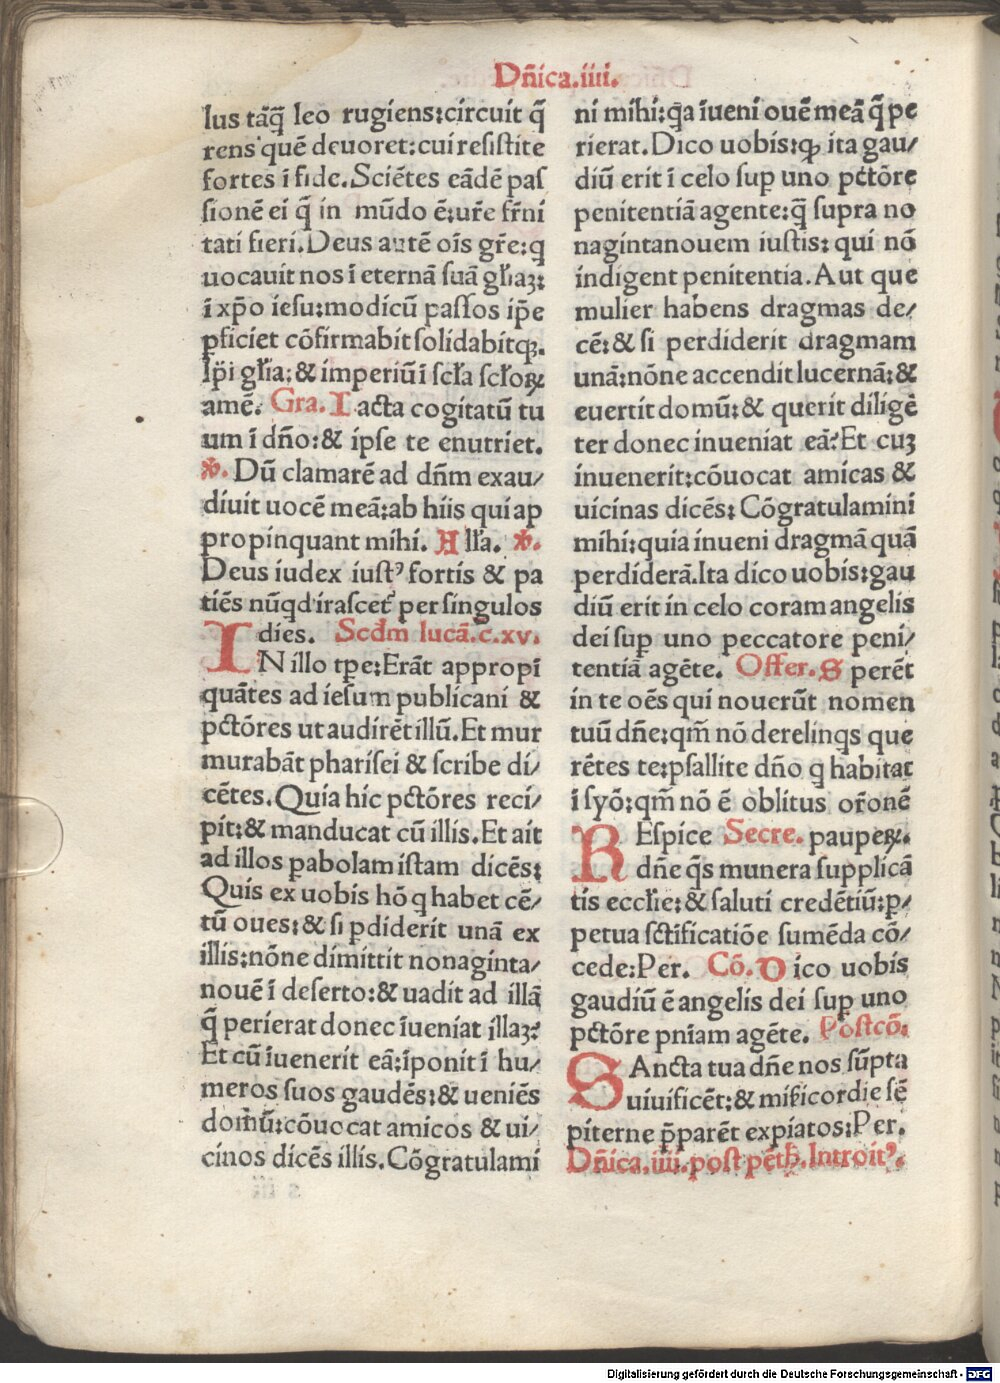 Dñica.iiii.
lus tãq̃ leo rugiens:circuit q̃
rens quē deuoret:cui resistite
fortes ī fide.Sciētes eãdē pas
sionē ei q̃ in mũdo ē:ur̃e fr̃ni
tati fieri.Deus autē oĩs gr̃e:q
uocauit nos ī eternã suã gl̃iaʒ:
ī xp̃o iesu:modicũ passos ip̃e
ꝑficiet cõfirmabit solidabitqꝫ.
Ip̃i gl̃ia:& imperiũ ī scl̃a scl̃oꝝ
amē. Gra. Iacta cogitatũ tu
um ī dño:& ipse te enutriet.
℣. Dũ clamarē ad dñm exau/
diuit uocē meã:ab hiis qui ap
propinquant mihi. Alla. ℣.
Deus iudex iustꝰ fortis & pa
tiēs nũqd irascet̃ per singulos
dies. Scđm lucã.c.xv.
IN illo tp̃e:Erãt appropĩ
quãtes ad iesum publicani &
pctõres ut audirēt illũ.Et mur
murabãt pharisei & scribe di/
cētes.Quia hic pctõres reci/
pit:& manducat cũ illis.Et ait
ad illos ꝑabolam istam dicēs:
Quis ex uobis hõ q habet cē/
tũ oues:& si ꝑdiderit unã ex
illis:nõne dimittit nonaginta/
nouē ī deserto:& uadit ad illã
q̃ perierat donec ĩueniat illaʒ?
Et cũ ĩuenerit eã:ĩponit ī hu/
meros suos gaudēs:& ueniēs
domũ:cõuocat amicos & ui/
cinos dicēs illis.Cõgratulami
ni mihi:qa ĩueni ouē meã q̃ pe
rierat.Dico uobis:ꝙ ita gau/
diũ erit ī celo suꝑ uno pctõre
penitentiã agente:q̃ supra no
nagintanouem iustis: qui nõ
indigent penitentia.Aut que
mulier habens dragmas de/
cē:& si perdiderit dragmam
unã:nõne accendit lucernã:&
euertit domũ:& querit diligē
ter donec inueniat eã?Et cuʒ
inuenerit:cõuocat amicas &
uicinas dicēs: Cõgratulamini
mihi:quia inueni dragmã quã
perdiderã.Ita dico uobis:gau
diũ erit in celo coram angelis
dei suꝑ uno peccatore peni/
tentiã agēte. Offer. Sperēt
in te oēs qui nouerũt nomen
tuũ dñe:qm̃ nõ derelinqs que
rētes te:psallite dño q habitat
ī syõ:qm̃ nõ ē oblitus or̃onē
REspice Secre. pauperꝝ.
dñe q̃s munera supplicã
tis eccl̃ie:& saluti credētiũ:ꝑ/
petua sctĩficatiõe sumēda cõ/
cede:Per. Cõ. Dico uobis
gaudiũ ē angelis dei suꝑ uno
pctõre pnĩam agēte. Postcõ.
SAncta tua dñe nos sũpta
uiuificēt:& mĩsicordie sē
piterne p̃parēt expiatos:Per.
Dñica.iiii.post pētħ.Introitꝰ.
Digitalisierung gefördert durch die Deutsche Forschungsgemeinschaft - DFG